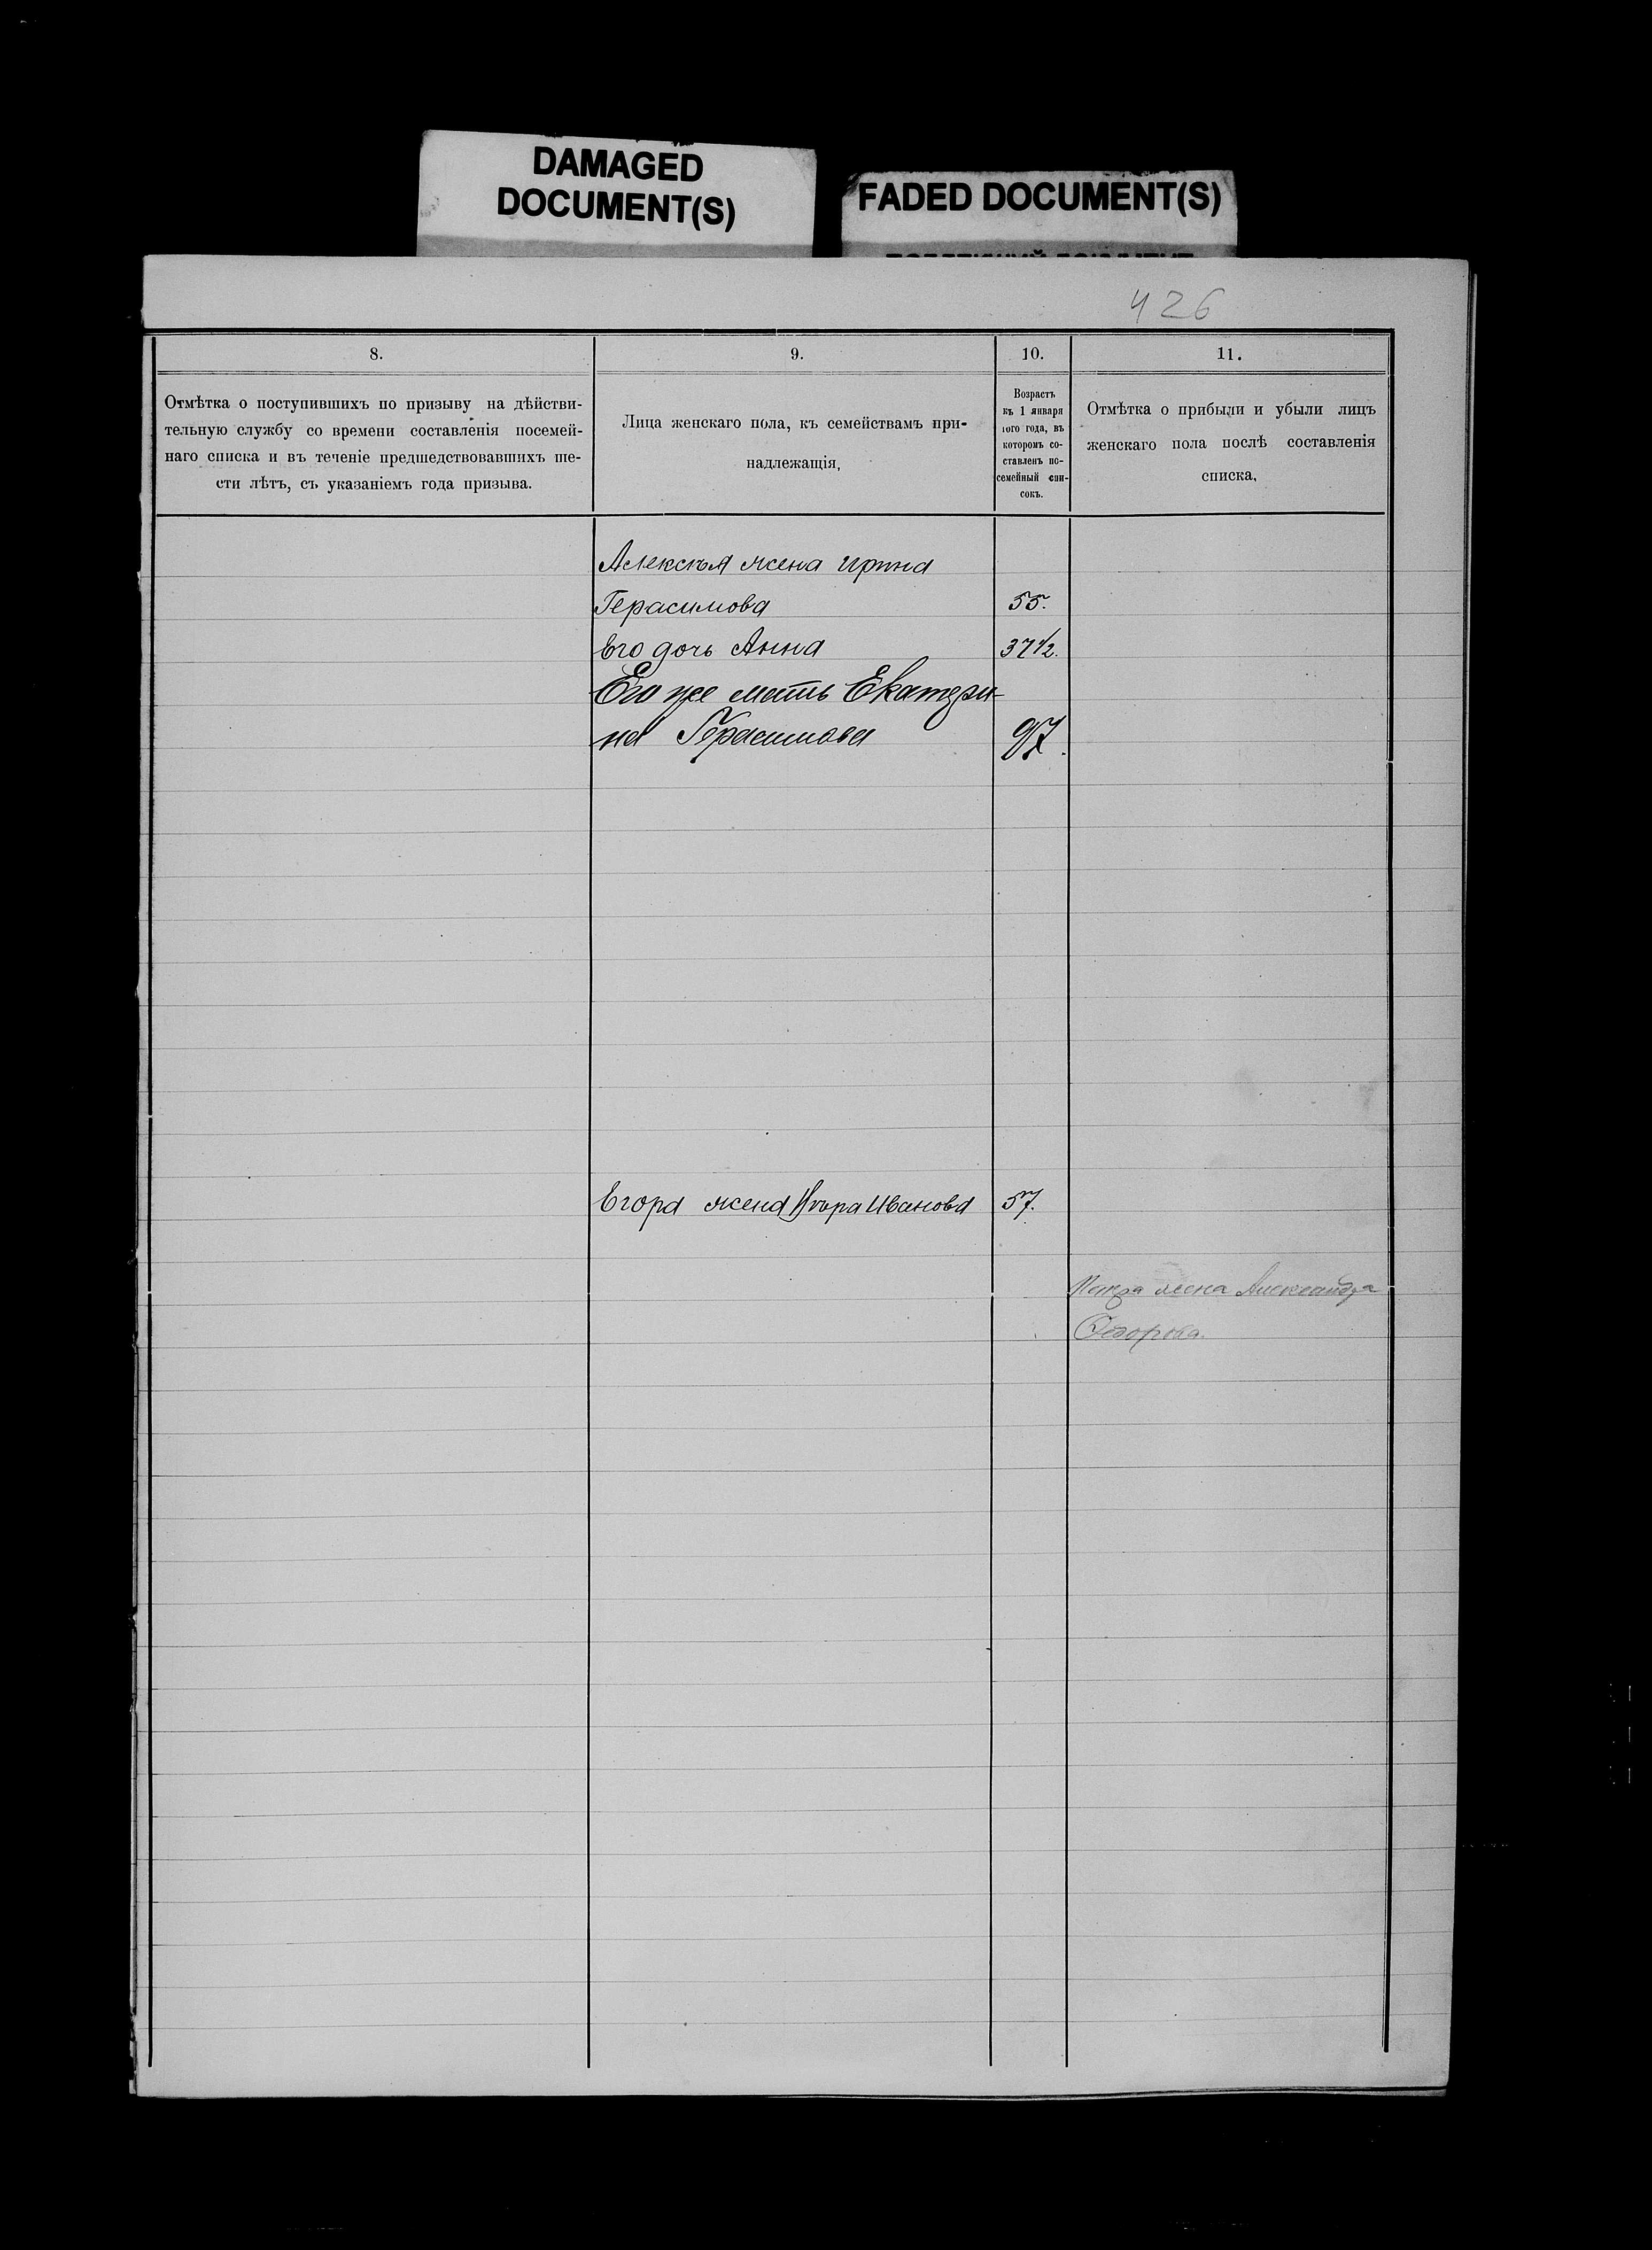 DAMAGED
DOCUMENT(S)
FADED DOCUMENT(S)
426
8.
9.
10.
11.
Отмѣтка о поступившихъ по призыву на дѣйстви-
тельную службу со времени составленія посемей-
наго списка и въ теченіе предшедствовавшихъ ше-
сти лѣтъ, съ указаніемъ года призыва.
Лица женскаго пола, къ семействамъ при-
надлежащія,
Возрастъ
къ 1 января
того года, въ
которомъ со-
ставленъ по-
семейный спи-
сокъ.
Отмѣтка о прибыли и убыли лицъ
женскаго пола послѣ составленія
списка,
Алексѣя жена Ирина
Герасимова 55.
Его дочь Анна 37 1/2.
Его же мать Екатери-
на Герасимова 97.
Егора жена Вѣра Иванова 57.
Петра жена Александра
Ѳедорова.